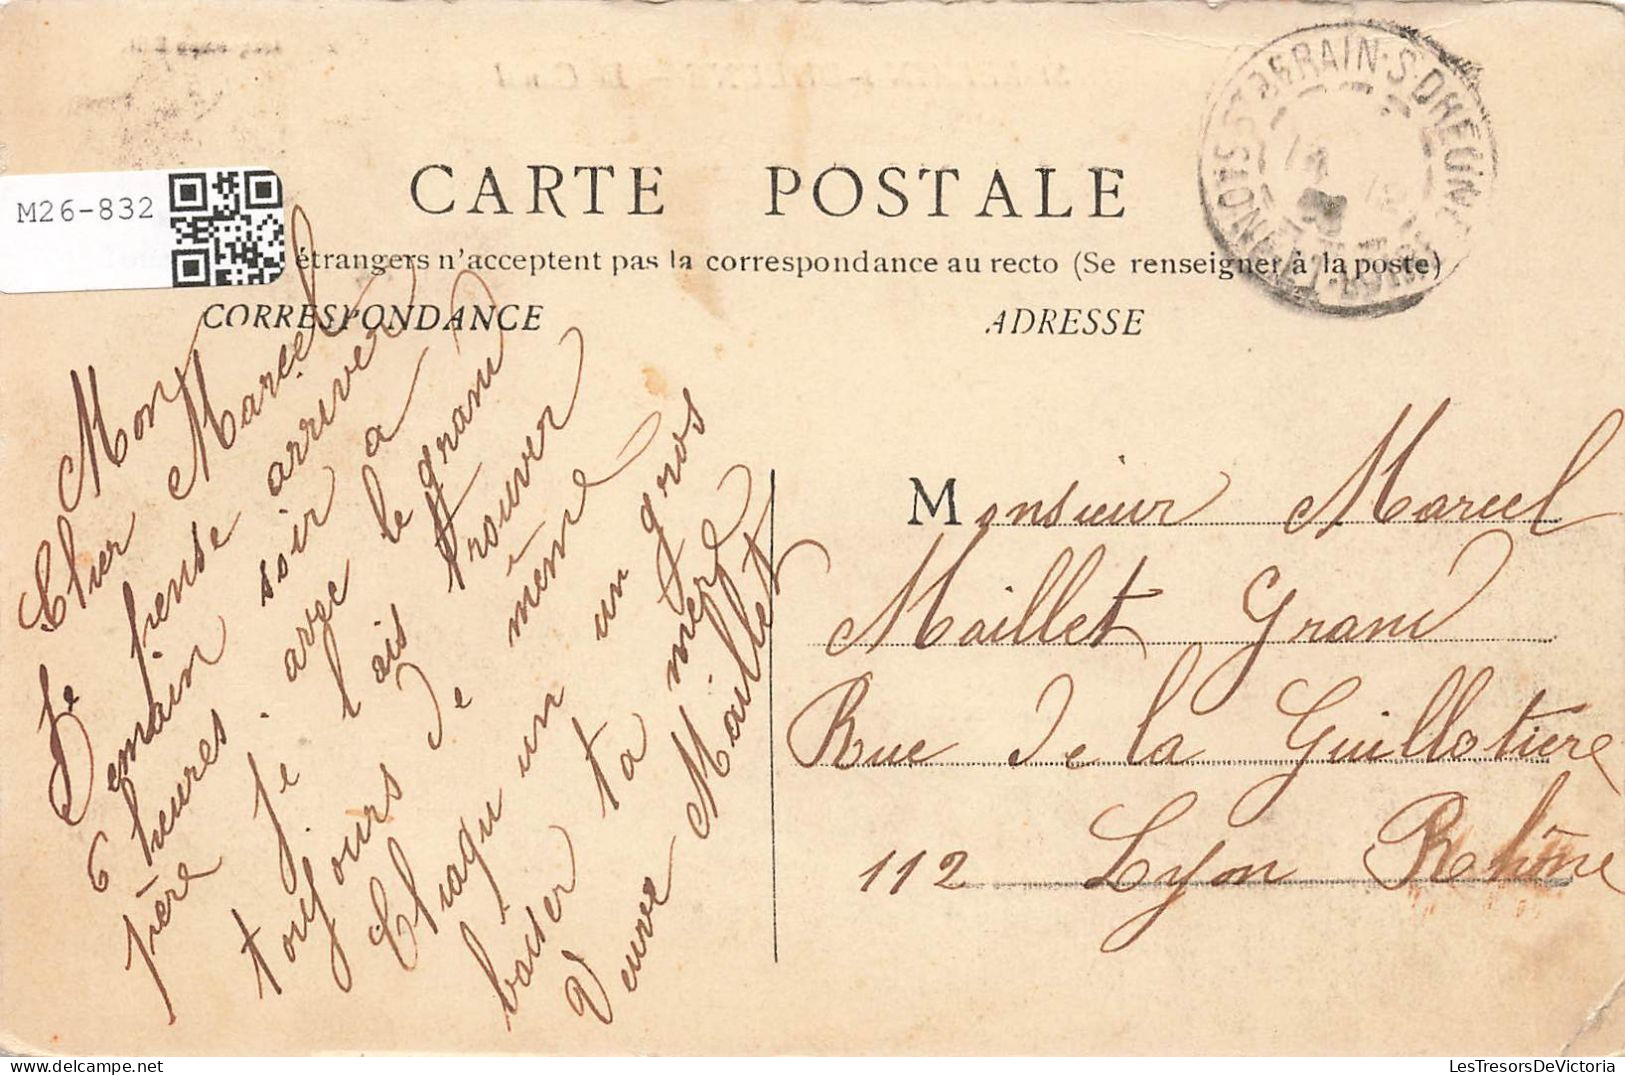 M26-832
CARTE POSTALE
étrangers n'acceptent pas la correspondance au recto (Se renseigner à la poste)
CORRESPONDANCE
Mon
Cher Marcel
Je pense arriver
Demain soir a
6 heures. avec le grand
père je l ais trouver
toujours de même
Chaqu un un gros
baiser ta mère
Veuve Maillet
ADRESSE
Monsieur Marcel
Maillet Grand
Rue de la Guillotiere
112 Lyon Rhône
DERAIN-S-DHEUNE
LesTresorsDeVictoria